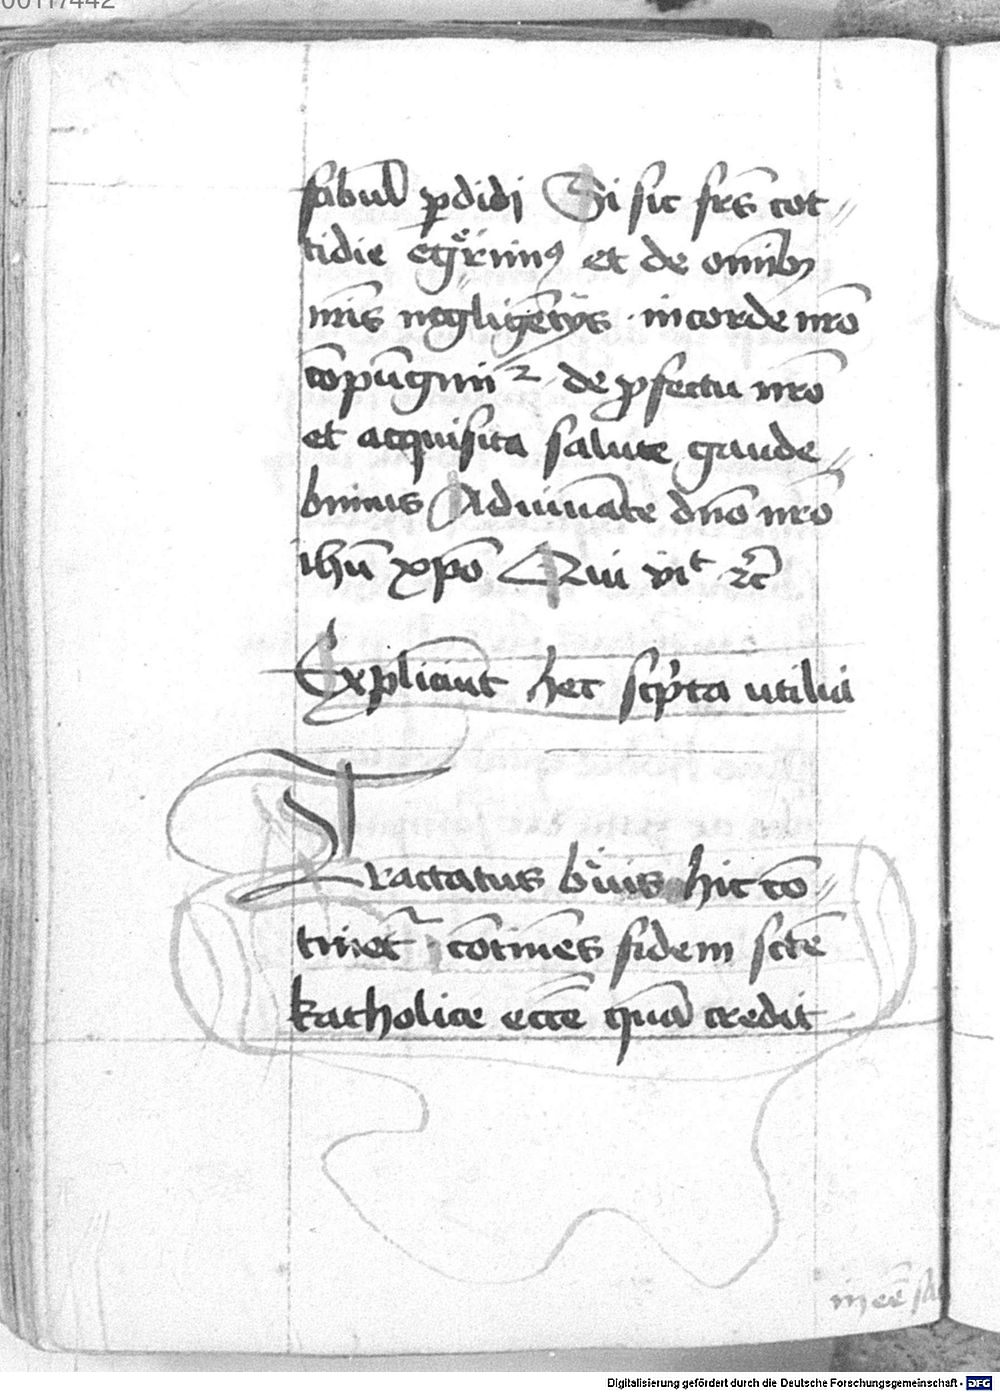 00117442
fabul̄ ꝑdidi Si sic frēs cot⸗
tidie egerimꝰ et de om̄ibꝫ
nr̄is negligētijs in corde nr̄o
cōpūgim̄ᷣ de ꝓfectu nr̄o
et acquisita salute gaude⸗
bimus Adiuuāte dn̄o nr̄o
ihū xp̄o Qui viᵗ ⁊c̄
Expliciūt hec scpͥta utilia
Tractatus bͤuis hic cō⸗
tinetᷣ cōtinēs fidem sctē
katholice ecc̄e quā credit
in eē
Digitalisierung gefördert durch die Deutsche Forschungsgemeinschaft - DFG